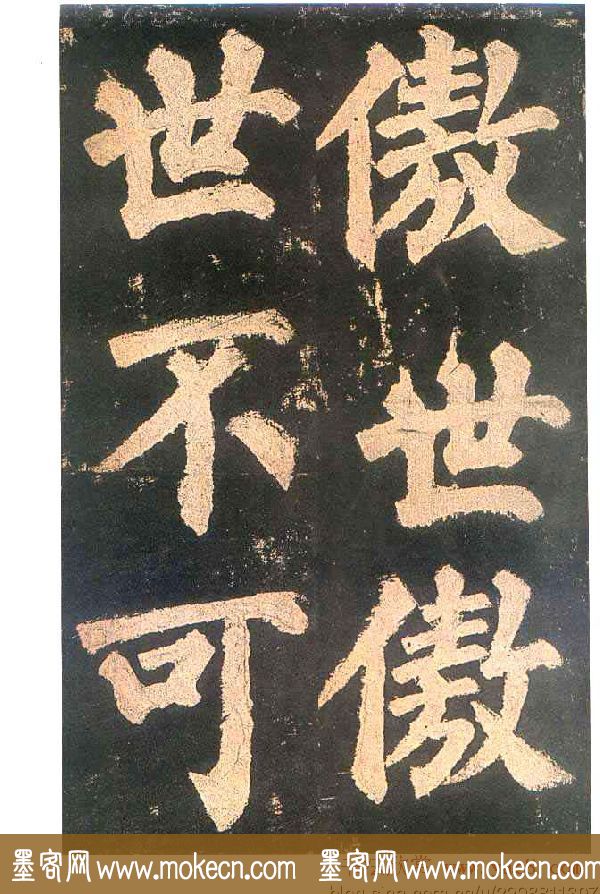 傲世傲
世不可
墨客网 www.mokecn.com 墨客网 www.mokecn.com